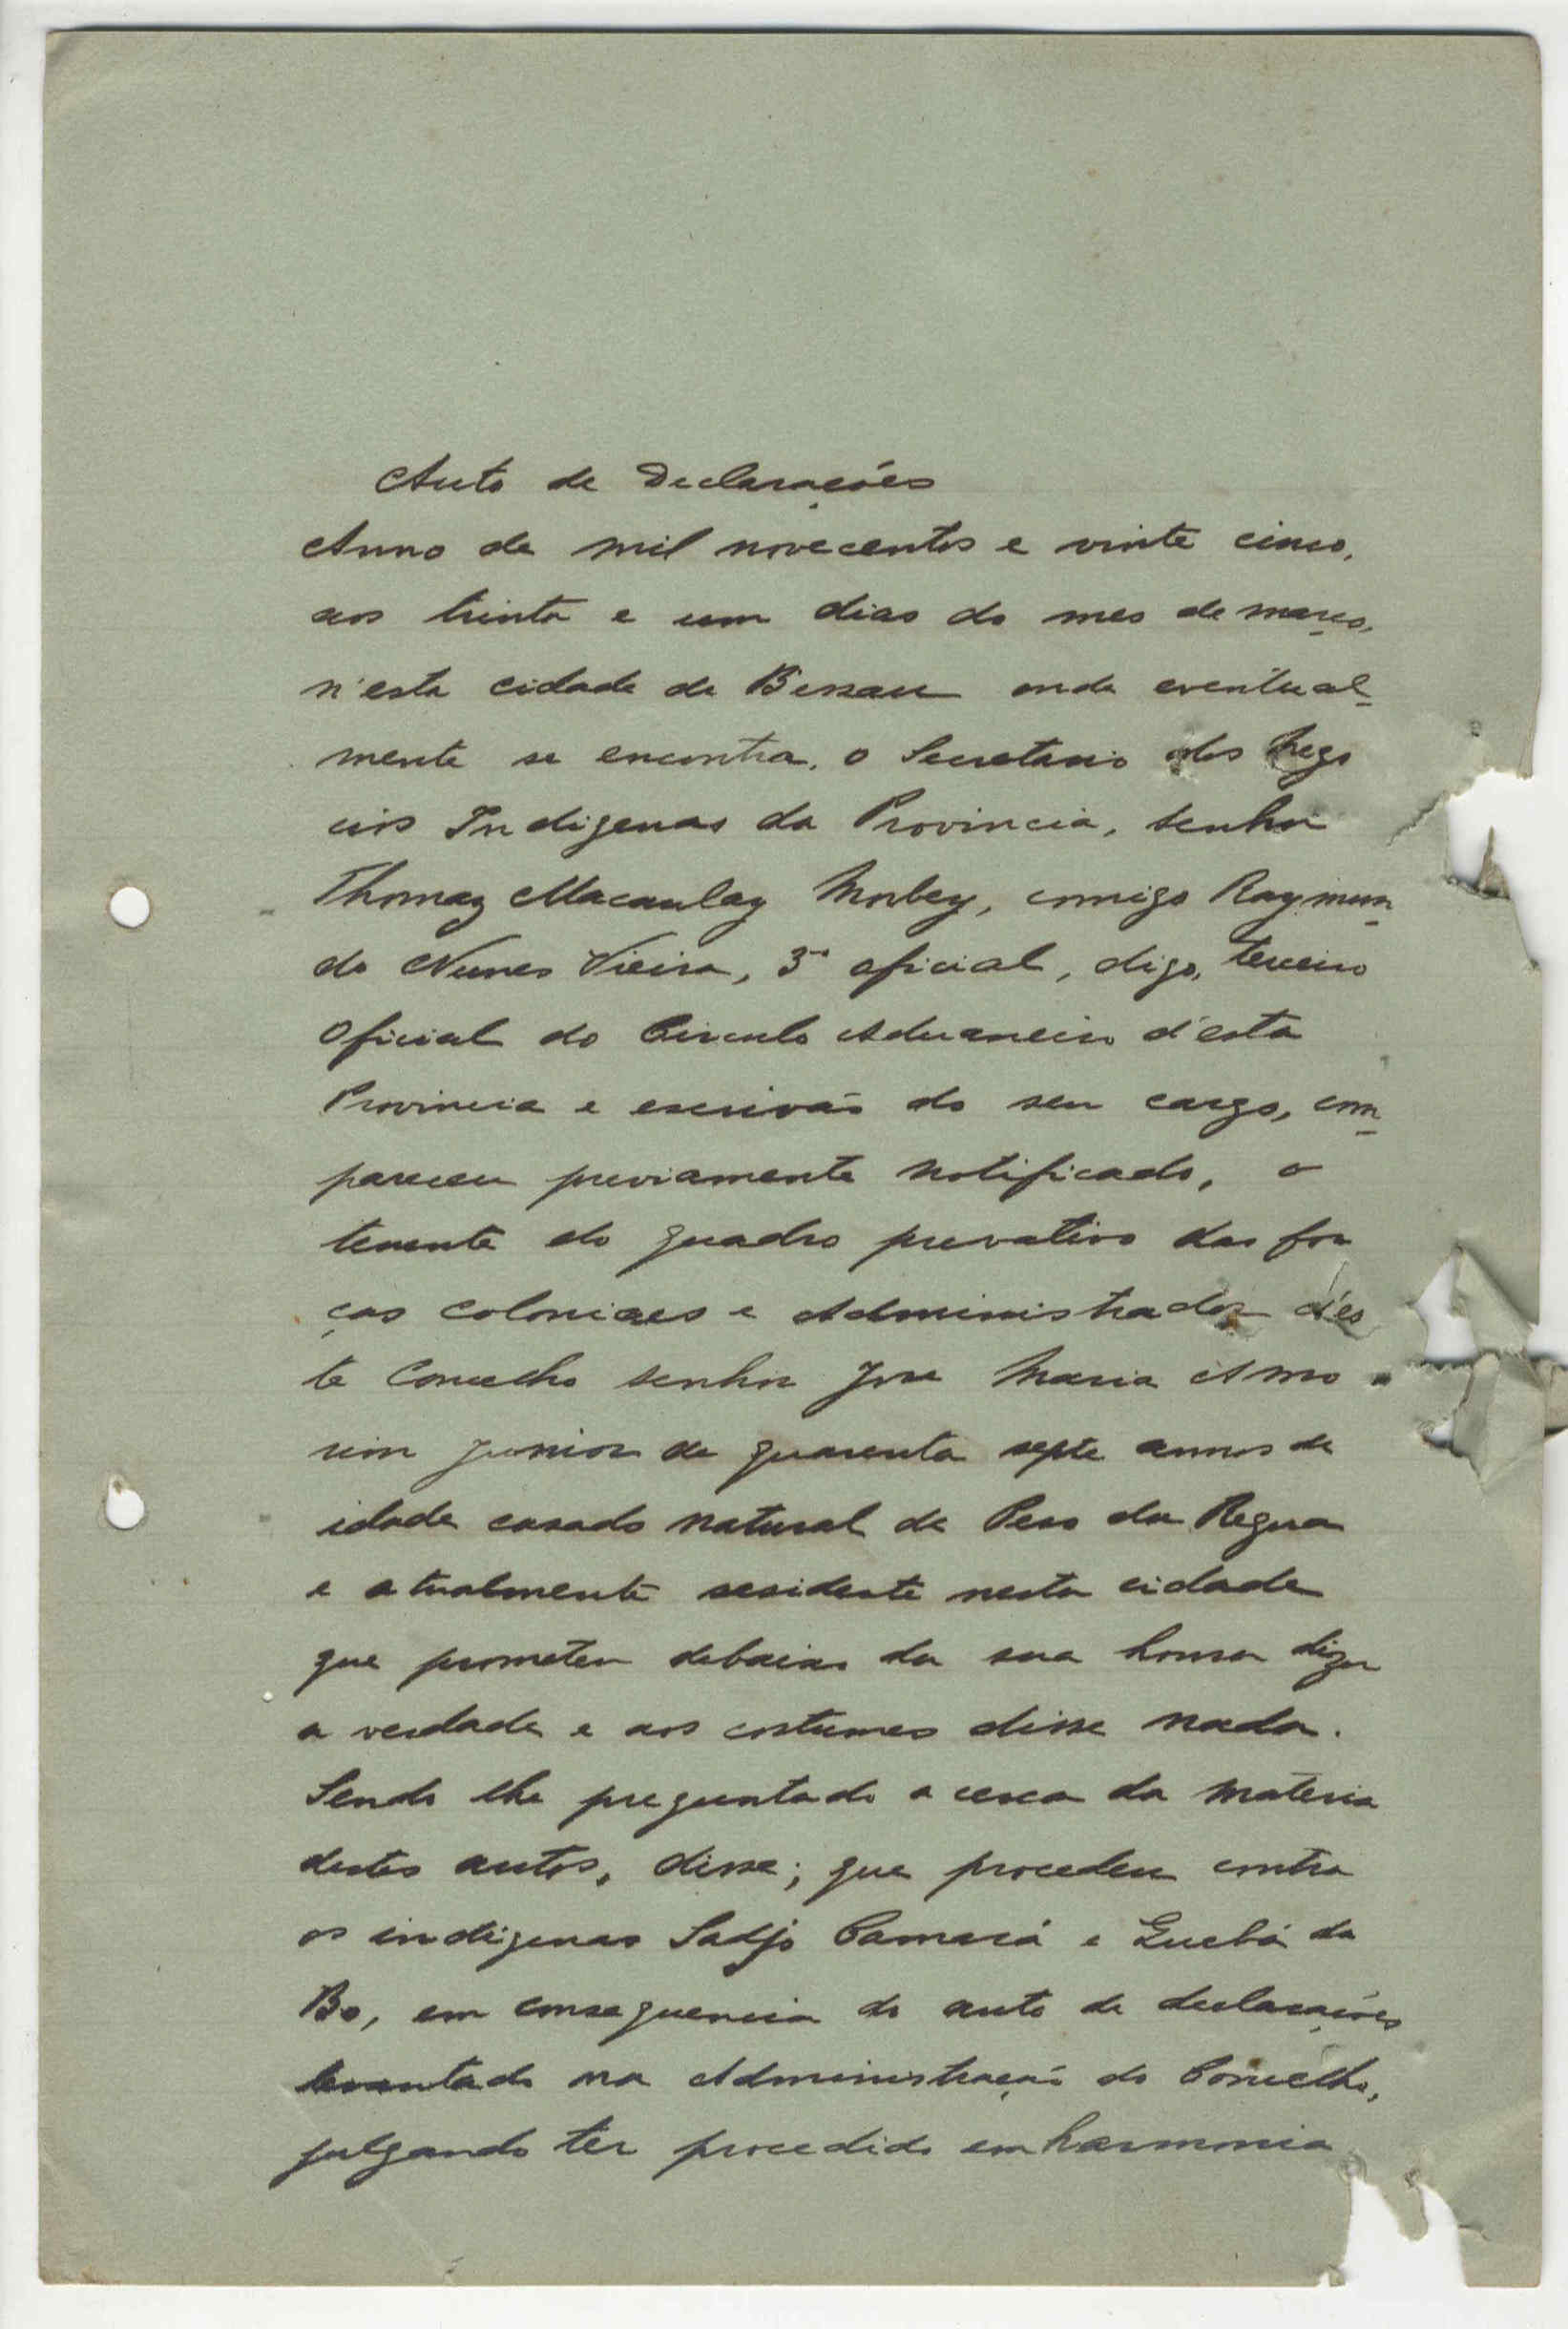 Auto de Declarações
Anno de mil novecentos e vinte cinco,
aos trinta e um dias do mes de março,
n'esta cidade de Bissau onde eventual-
mente se encontra, o Secretario dos Nego
cios Indigenas da Provincia, senhor
Thomaz Macaulay Morbey, comigo Raymun-
do Nunes Vieira, 3º oficial, digo, terceiro
Oficial do Circulo Aduaneiro d'esta
Provincia e escrivão do seu cargo, com-
pareceu previamente notificado, o
tenente do quadro privativo das for
ças coloniaes e Administrador d'es
te Concelho senhor José Maria Amo
rim Junior de quarenta septe annos de
idade casado natural de Peso da Regua
e atualmente residente nesta cidade
que prometeu debaixo da sua honra dizer
a verdade e aos costumes disse nada.
Sendo lhe preguntado a cerca da materia
destes autos, disse; que procedeu contra
os indigenas Sadjo Camará e Quebá da
Bo, em consequencia do auto de declarações
levantado na Administração do Concelho,
julgando ter procedido em harmonia